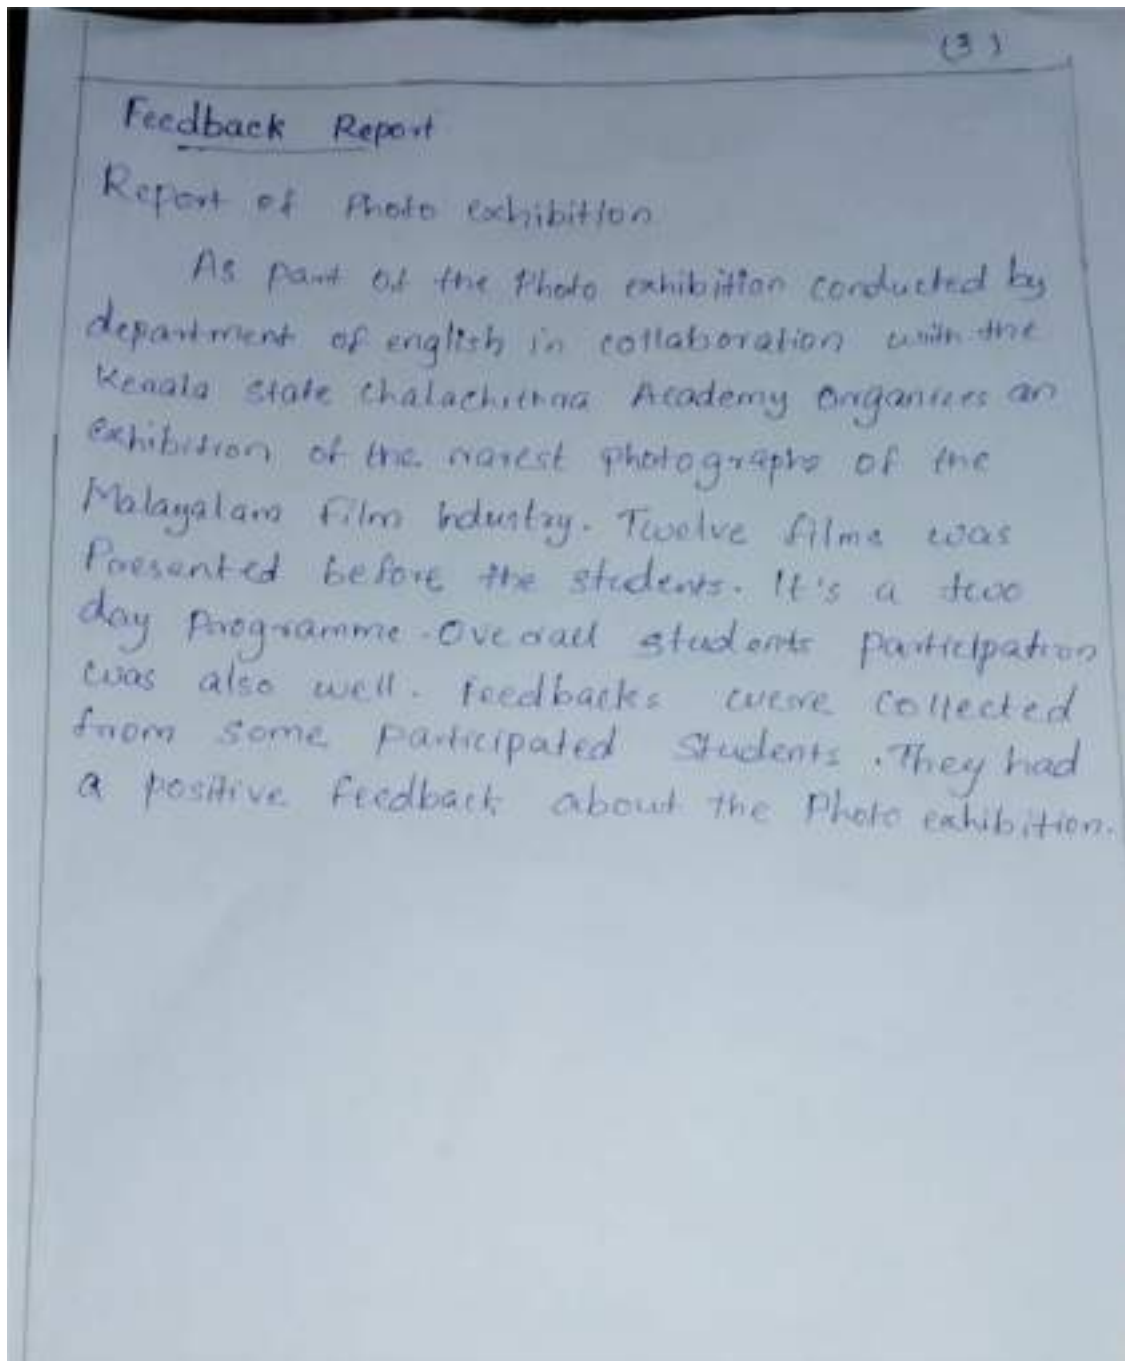 (3)
Feedback Report
Report of Photo exhibition
As part of the Photo exhibition conducted by
department of english in collaboration with the
Kerala State Chalachithra Academy Organizes an
exhibition of the rarest photographs of the
Malayalam Film Industry. Twelve films was
Presented before the students. It's a two
day Programme. Over all students participation
was also well. Feedbacks were collected
from some participated Students. They had
a positive feedback about the Photo exhibition.